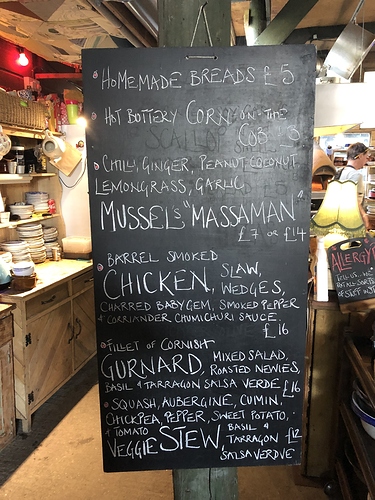 HOMEMADE BREADS £5
HOT BUTTERY CORN ON-THE
COB £3
CHILLI, GINGER, PEANUT, COCONUT,
LEMONGRASS, GARLIC
MUSSELS "MASSAMAN"
£7 OR £14
BARREL SMOKED
CHICKEN, SLAW,
WEDGES,
CHARRED BABY GEM, SMOKED PEPPER
+ CORRIANDER CHUMICHURI SAUCE.
£16
FILLET OF CORNISH
GURNARD, MIXED SALAD,
ROASTED NEWIES,
BASIL & TARRAGON SALSA VERDE £16
SQUASH, AUBERGINE, CUMIN,
CHICKPEA, PEPPER, SWEET POTATO,
+ TOMATO BASIL &
VEGGIE STEW, TARRAGON £12
SALSA VERDVE
ALLERGY?